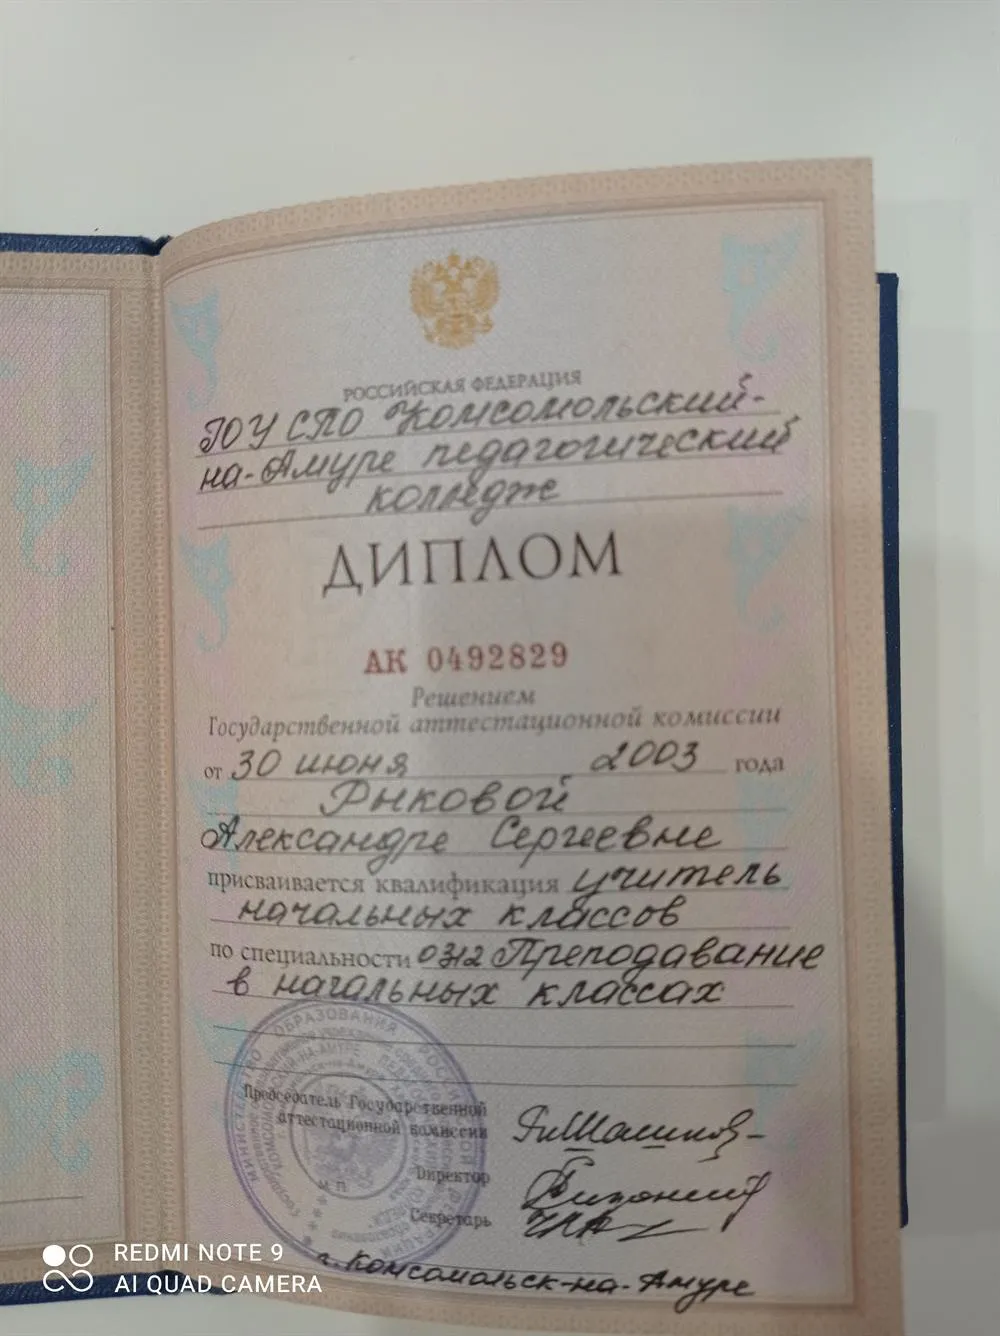 РОССИЙСКАЯ ФЕДЕРАЦИЯ
ГОУ СПО Комсомольский-
на-Амуре педагогический
колледж
ДИПЛОМ
АК 0492829
Решением
Государственной аттестационной комиссии
от 30 июня 2003 года
Рыковой
Александре Сергеевне
присваивается квалификация учитель
начальных классов
по специальности 0312 Преподавание
в начальных классах
МИНИСТЕРСТВО ОБРАЗОВАНИЯ РОССИЙСКОЙ ФЕДЕРАЦИИ
Председатель Государственной
аттестационной комиссии
Директор
М.П.
Секретарь
г. Комсомольск-на-Амуре
REDMI NOTE 9
AI QUAD CAMERA